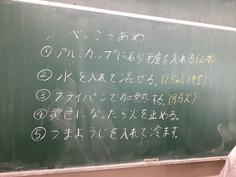 べっこうあめ
① アルミカップに砂糖を入れる(2本)
② 水を入れて混ぜる。
③ フライパンで加熱する。(弱火)
④ 黄色になったら火を止める。
⑤ つまようじを入れて冷ます。